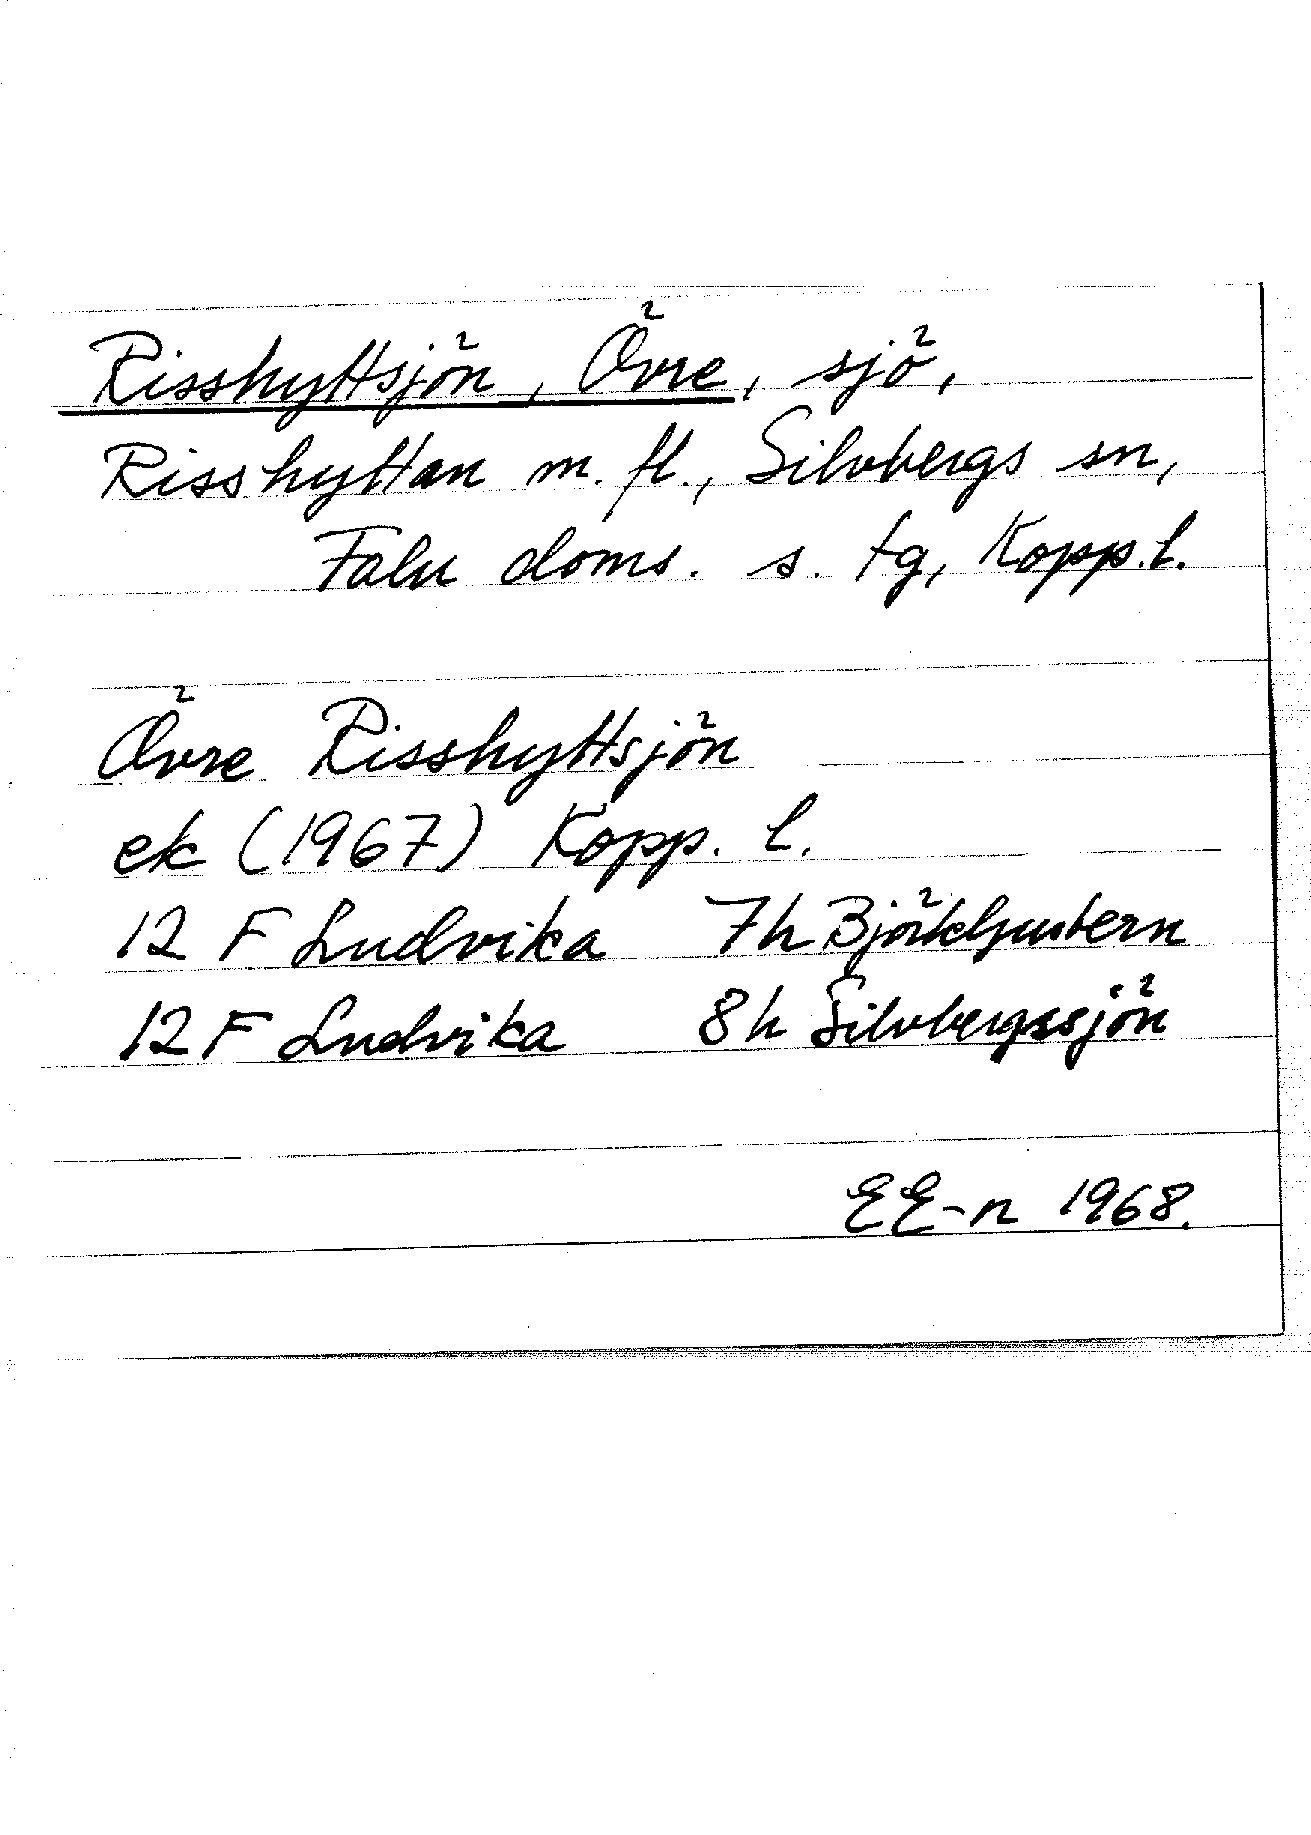 Risshyttsjön, Övre, sjö,
Risshyttan m. fl., Silvbergs sn,
Falu doms. s. tg, Kopp. l.
Övre Risshyttsjön
ek (1967) Kopp. l.
12 F Ludvika 7h Björkljustern
12 F Ludvika 8h Silvbergssjön
EE-n 1968.